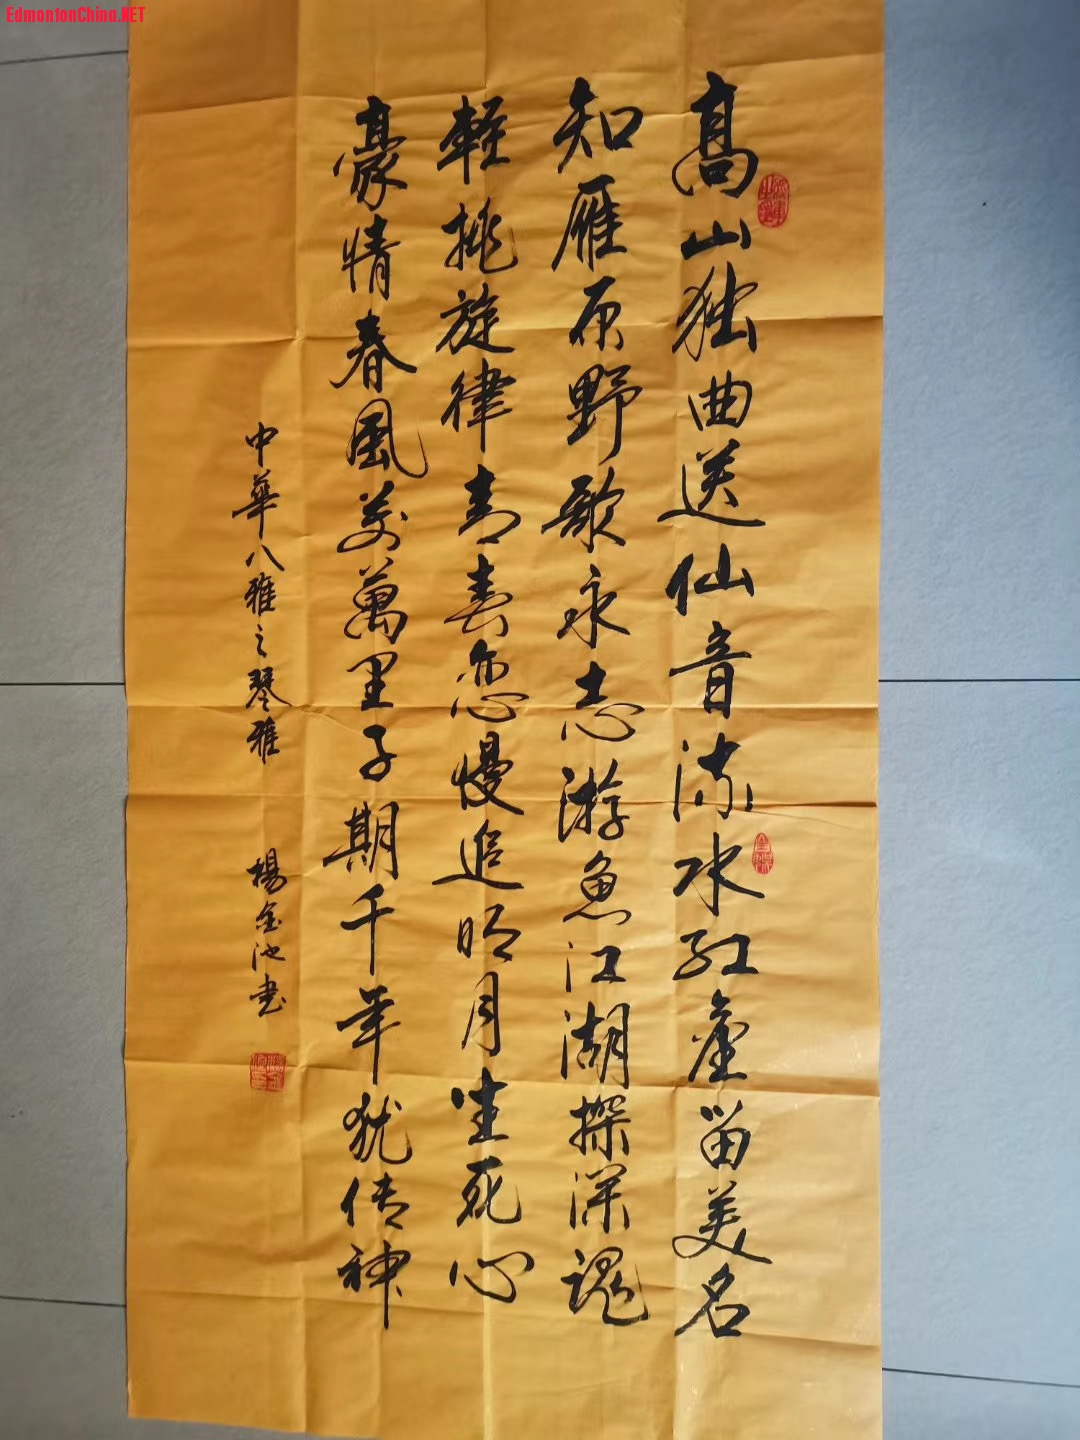 EdmontonChina.NET
髙山独曲送仙音流水红尘留美名
知雁原野歌永志游鱼江湖探深魂
轻挑旋律青春恋慢追明月生死心
豪情春風万里子期千年犹传神
中華八雅之琴雅 楊金池书